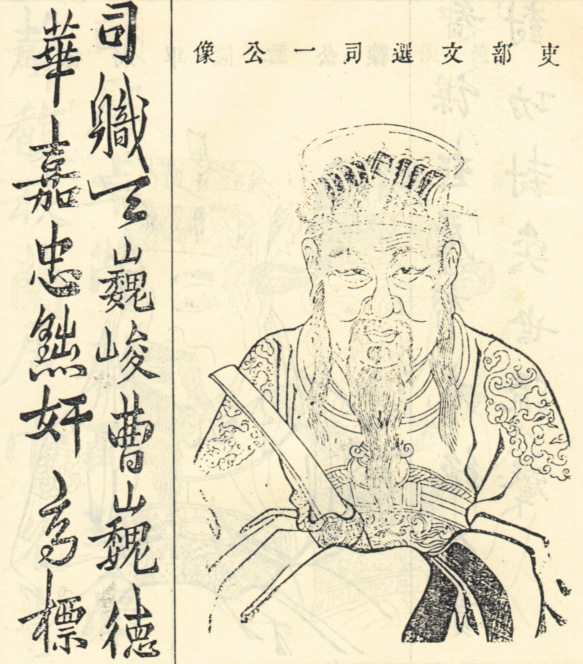 吏部文選司一公像
司軄天巍峻曹巍德
華嘉忠黜奸高標